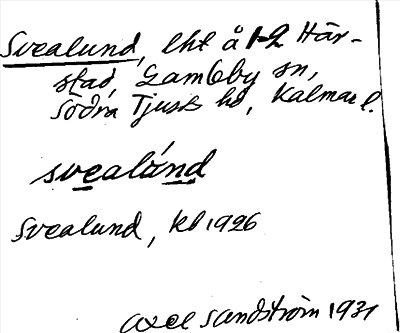 Svealund, lht å 1-2 Här-
stad, Gamleby sn,
Södra Tjusts hd, Kalmar l.
svealúnd
Svealund, kb 1926
Axel Sandström 1931